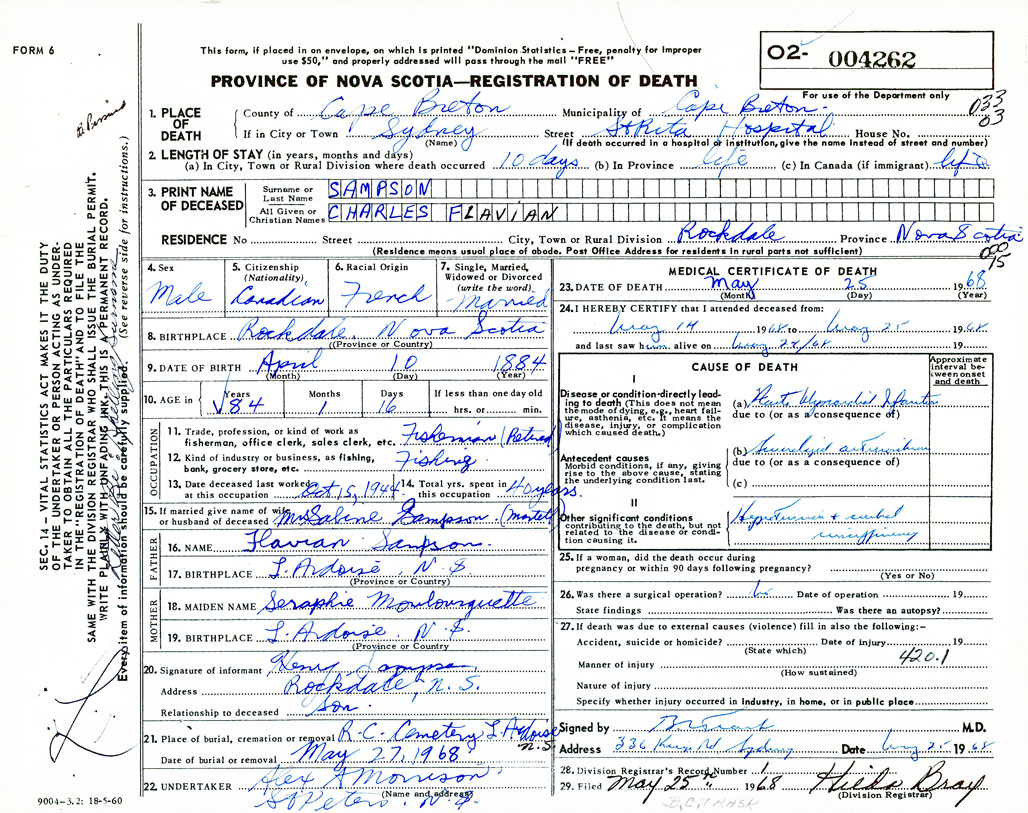 FORM 6
This form, if placed in an envelope, on which is printed "Dominion Statistics – Free, penalty for improper
use $50," and properly addressed will pass through the mail "FREE"
PROVINCE OF NOVA SCOTIA—REGISTRATION OF DEATH
02- 004262
For use of the Department only
033
03
1. PLACE OF DEATH
County of Cape Breton Municipality of Cape Breton
If in City or Town Sydney Street St Rita Hospital House No.
(Name) (If death occurred in a hospital or institution, give the name instead of street and number)
2. LENGTH OF STAY (in years, months and days)
(a) In City, Town or Rural Division where death occurred 10 days (b) In Province life (c) In Canada (if immigrant) life
3. PRINT NAME OF DECEASED
Surname or Last Name SAMPSON
All Given or Christian Names CHARLES FLAVIAN
RESIDENCE No Street City, Town or Rural Division Rockdale Province Nova Scotia
(Residence means usual place of abode. Post Office Address for residents in rural parts not sufficient)
4. Sex Male
5. Citizenship (Nationality) Canadian
6. Racial Origin French
7. Single, Married, Widowed or Divorced (write the word) Married
8. BIRTHPLACE Rockdale, Nova Scotia
(Province or Country)
9. DATE OF BIRTH April 10 1884
(Month) (Day) (Year)
10. AGE in Years 84 Months 1 Days 16 If less than one day old hrs. or min.
OCCUPATION
11. Trade, profession, or kind of work as
fisherman, office clerk, sales clerk, etc. Fisherman (Retired)
12. Kind of industry or business, as fishing,
bank, grocery store, etc. Fishing
13. Date deceased last worked at this occupation Oct 15, 1944
14. Total yrs. spent in this occupation 40 years.
15. If married give name of wife
or husband of deceased Mrs Sabine Sampson (Martell)
FATHER
16. NAME Flavian Sampson
17. BIRTHPLACE L'Ardoise, N.S
(Province or Country)
MOTHER
18. MAIDEN NAME Seraphie
19. BIRTHPLACE L'Ardoise, N.S.
(Province or Country)
20. Signature of informant Henry Sampson
Address Rockdale, N.S.
Relationship to deceased Son
21. Place of burial, cremation or removal R.C. Cemetery L'Ardoise N.S.
Date of burial or removal May 27, 1968
22. UNDERTAKER Alex A Morrison
(Name and address)
St Peters, N.S.
9004–3.2: 18-5-60
MEDICAL CERTIFICATE OF DEATH
23. DATE OF DEATH May 25 1968
(Month) (Day) (Year)
24. I HEREBY CERTIFY that I attended deceased from:
May 14 1968 to May 25 1968
and last saw him alive on May 24/68 19
CAUSE OF DEATH
Approximate interval between onset and death
I
Disease or condition directly leading to death (This does not mean the mode of dying, e.g., heart failure, asthenia, etc. It means the disease, injury, or complication which caused death.)
(a)
due to (or as a consequence of)
Antecedent causes
Morbid conditions, if any, giving rise to the above cause, stating the underlying condition last.
(b)
due to (or as a consequence of)
(c)
II
Other significant conditions contributing to the death, but not related to the disease or condition causing it.
25. If a woman, did the death occur during
pregnancy or within 90 days following pregnancy?
(Yes or No)
26. Was there a surgical operation? No Date of operation 19
State findings Was there an autopsy?
27. If death was due to external causes (violence) fill in also the following:–
Accident, suicide or homicide? Date of injury 19
(State which)
420.1
Manner of injury
(How sustained)
Nature of injury
Specify whether injury occurred in industry, in home, or in public place
Signed by M.D.
Address 336 Kings Rd Sydney Date May 25 1968
28. Division Registrar's Record Number
29. Filed May 25th 1968 Hilda Bray
(Division Registrar)
SEC. 14 – VITAL STATISTICS ACT MAKES IT THE DUTY
OF THE UNDERTAKER OR PERSON ACTING AS UNDER-
TAKER TO OBTAIN ALL THE PARTICULARS REQUIRED
IN THE "REGISTRATION OF DEATH" AND TO FILE THE
SAME WITH THE DIVISION REGISTRAR WHO SHALL ISSUE THE BURIAL PERMIT.
WRITE PLAINLY WITH UNFADING INK. THIS IS A PERMANENT RECORD.
Every item of information should be carefully supplied. (See reverse side for instructions.)